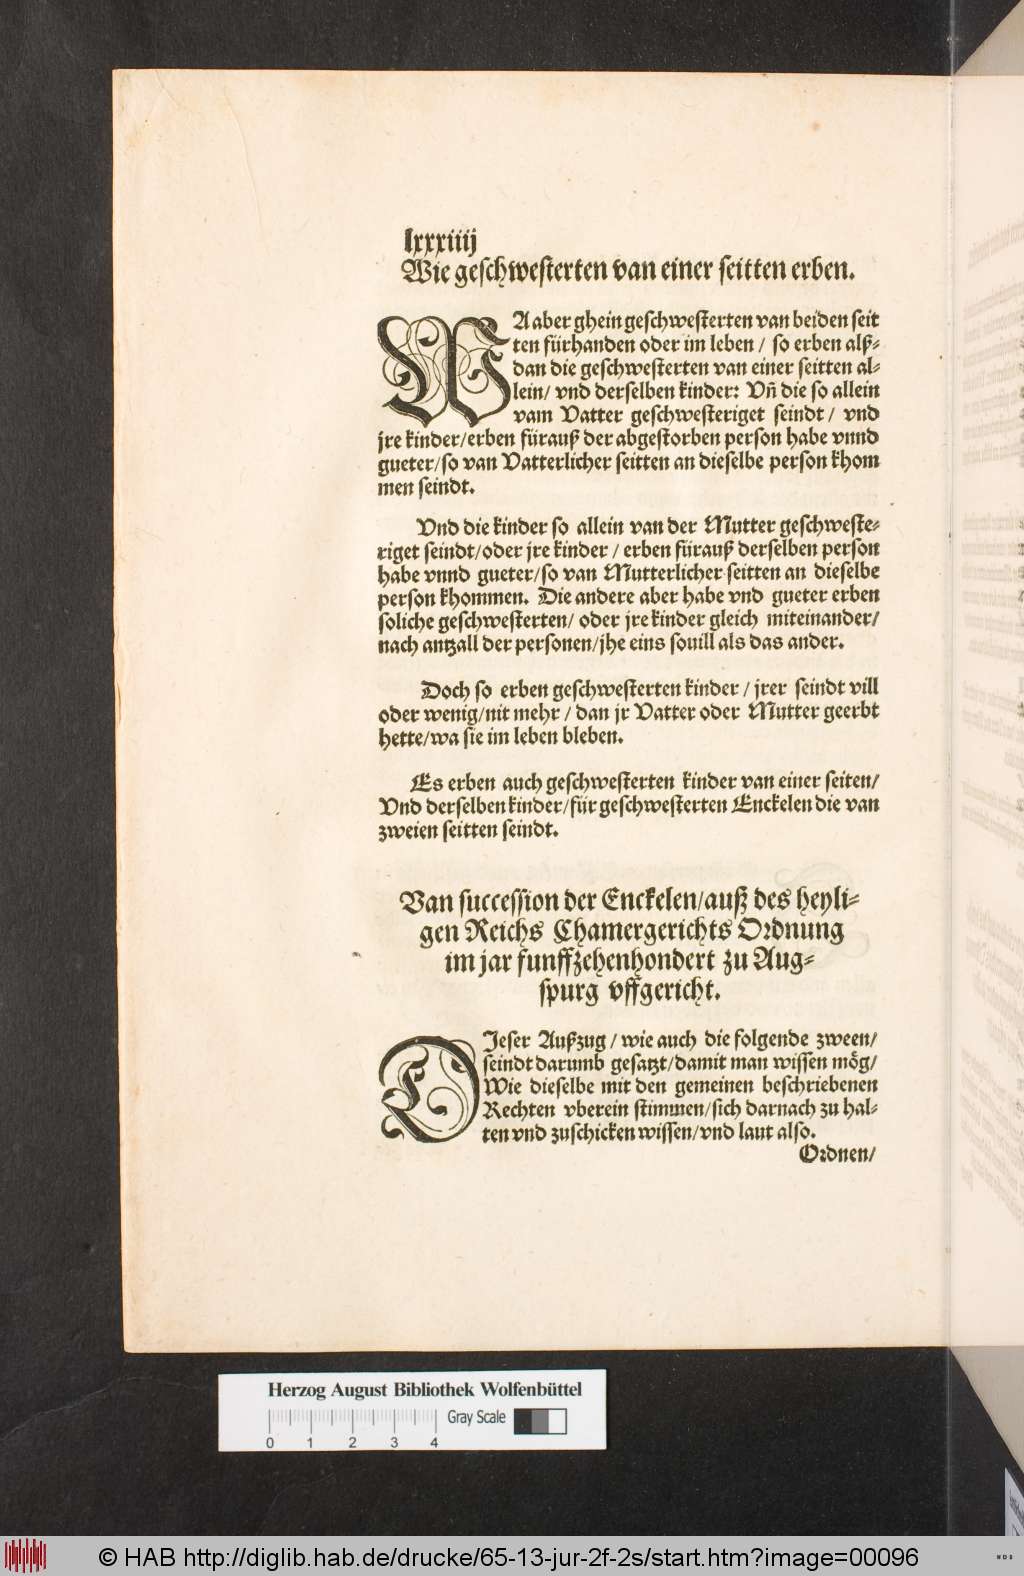 lxxxiiij
Wie geschwesterten van einer seitten erben.
WA aber ghein geschwesterten van beiden seit
ten fürhanden oder im leben / so erben alß⸗
dan die geschwesterten van einer seitten al⸗
lein/ vnd derselben kinder: Vñ die so allein
vam Vatter geschwesteriget seindt / vnd
jre kinder/erben fürauß der abgestorben person habe vnnd
gueter/so van Vatterlicher seitten an dieselbe person khom
men seindt.
Vnd die kinder so allein van der Mutter geschweste⸗
riget seindt/oder jre kinder / erben fürauß derselben person
habe vnnd gueter/so van Mutterlicher seitten an dieselbe
person khommen. Die andere aber habe vnd gueter erben
soliche geschwesterten/ oder jre kinder gleich miteinander/
nach antzall der personen/jhe eins souill als das ander.
Doch so erben geschwesterten kinder / jrer seindt vill
oder wenig/nit mehr / dan jr Vatter oder Mutter geerbt
hette/wa sie im leben bleben.
Es erben auch geschwesterten kinder van einer seiten/
Vnd derselben kinder/für geschwesterten Enckelen die van
zweien seitten seindt.
Van succession der Enckelen/auß des heyli⸗
gen Reichs Chamergerichts Ordnung
im jar funffzehenhondert zu Aug⸗
spurg vffgericht.
DJeser Außzug / wie auch die folgende zween/
seindt darumb gesatzt/damit man wissen mög/
Wie dieselbe mit den gemeinen beschriebenen
Rechten vberein stimmen/sich darnach zu hal⸗
ten vnd zuschicken wissen/vnd laut also.
Ordnen/
Herzog August Bibliothek Wolfenbüttel
Gray Scale
0 1 2 3 4
© HAB http://diglib.hab.de/drucke/65-13-jur-2f-2s/start.htm?image=00096